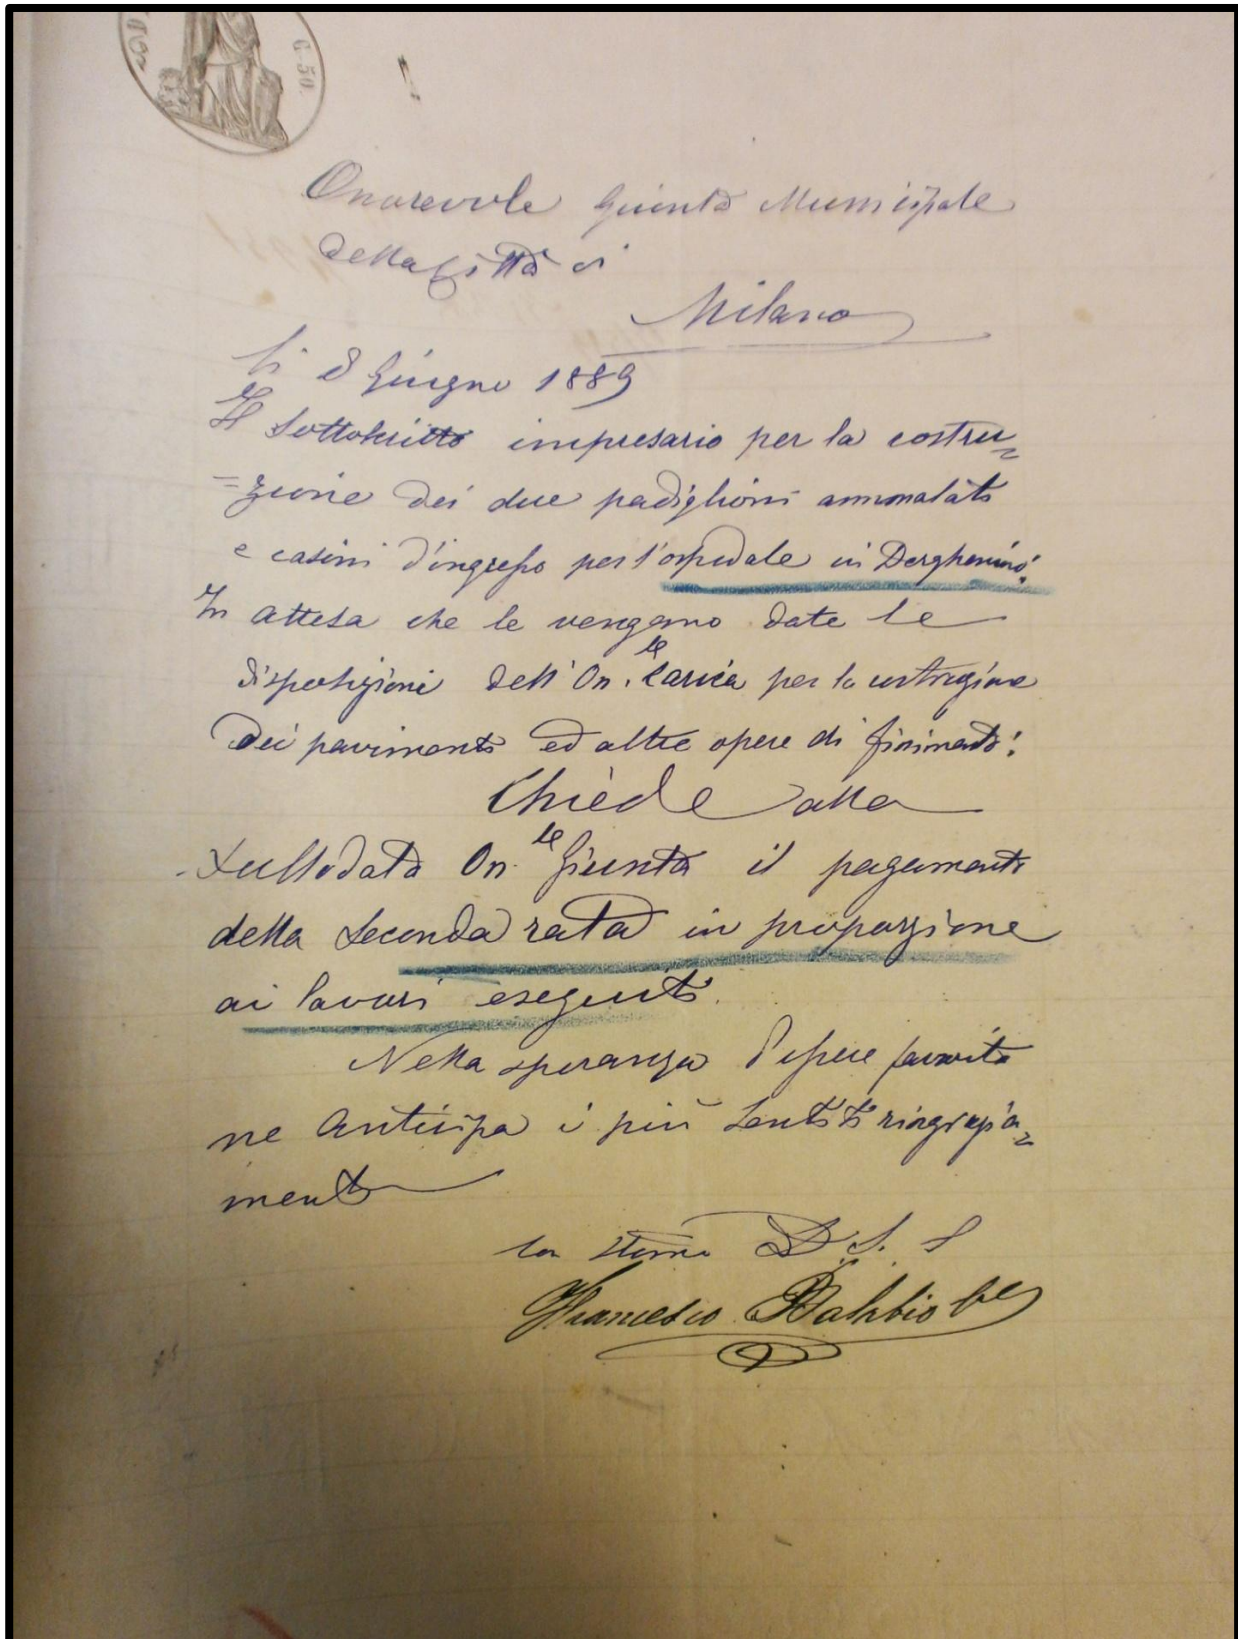 C. 50
Onorevole Giunta Municipale
della Città di
Milano
li 8 Giugno 1889
Il Sottoscritto impresario per la costru=
=zione dei due padiglioni ammalati
e casini d'ingresso per l'ospedale in Derghanino.
In attesa che le vengano date le
disposizioni dell' On.le Carica per la costruzione
dei pavimenti ed altre opere di finimento:
Chiede alla
Sullodata On.le Giunta il pagamento
della Seconda rata in proporzione
ai lavori eseguiti.
Nella speranza d'essere favorito
ne Anticipa i più Sentiti ringrazia=
menti
Con Stima D. S. S
Francesco